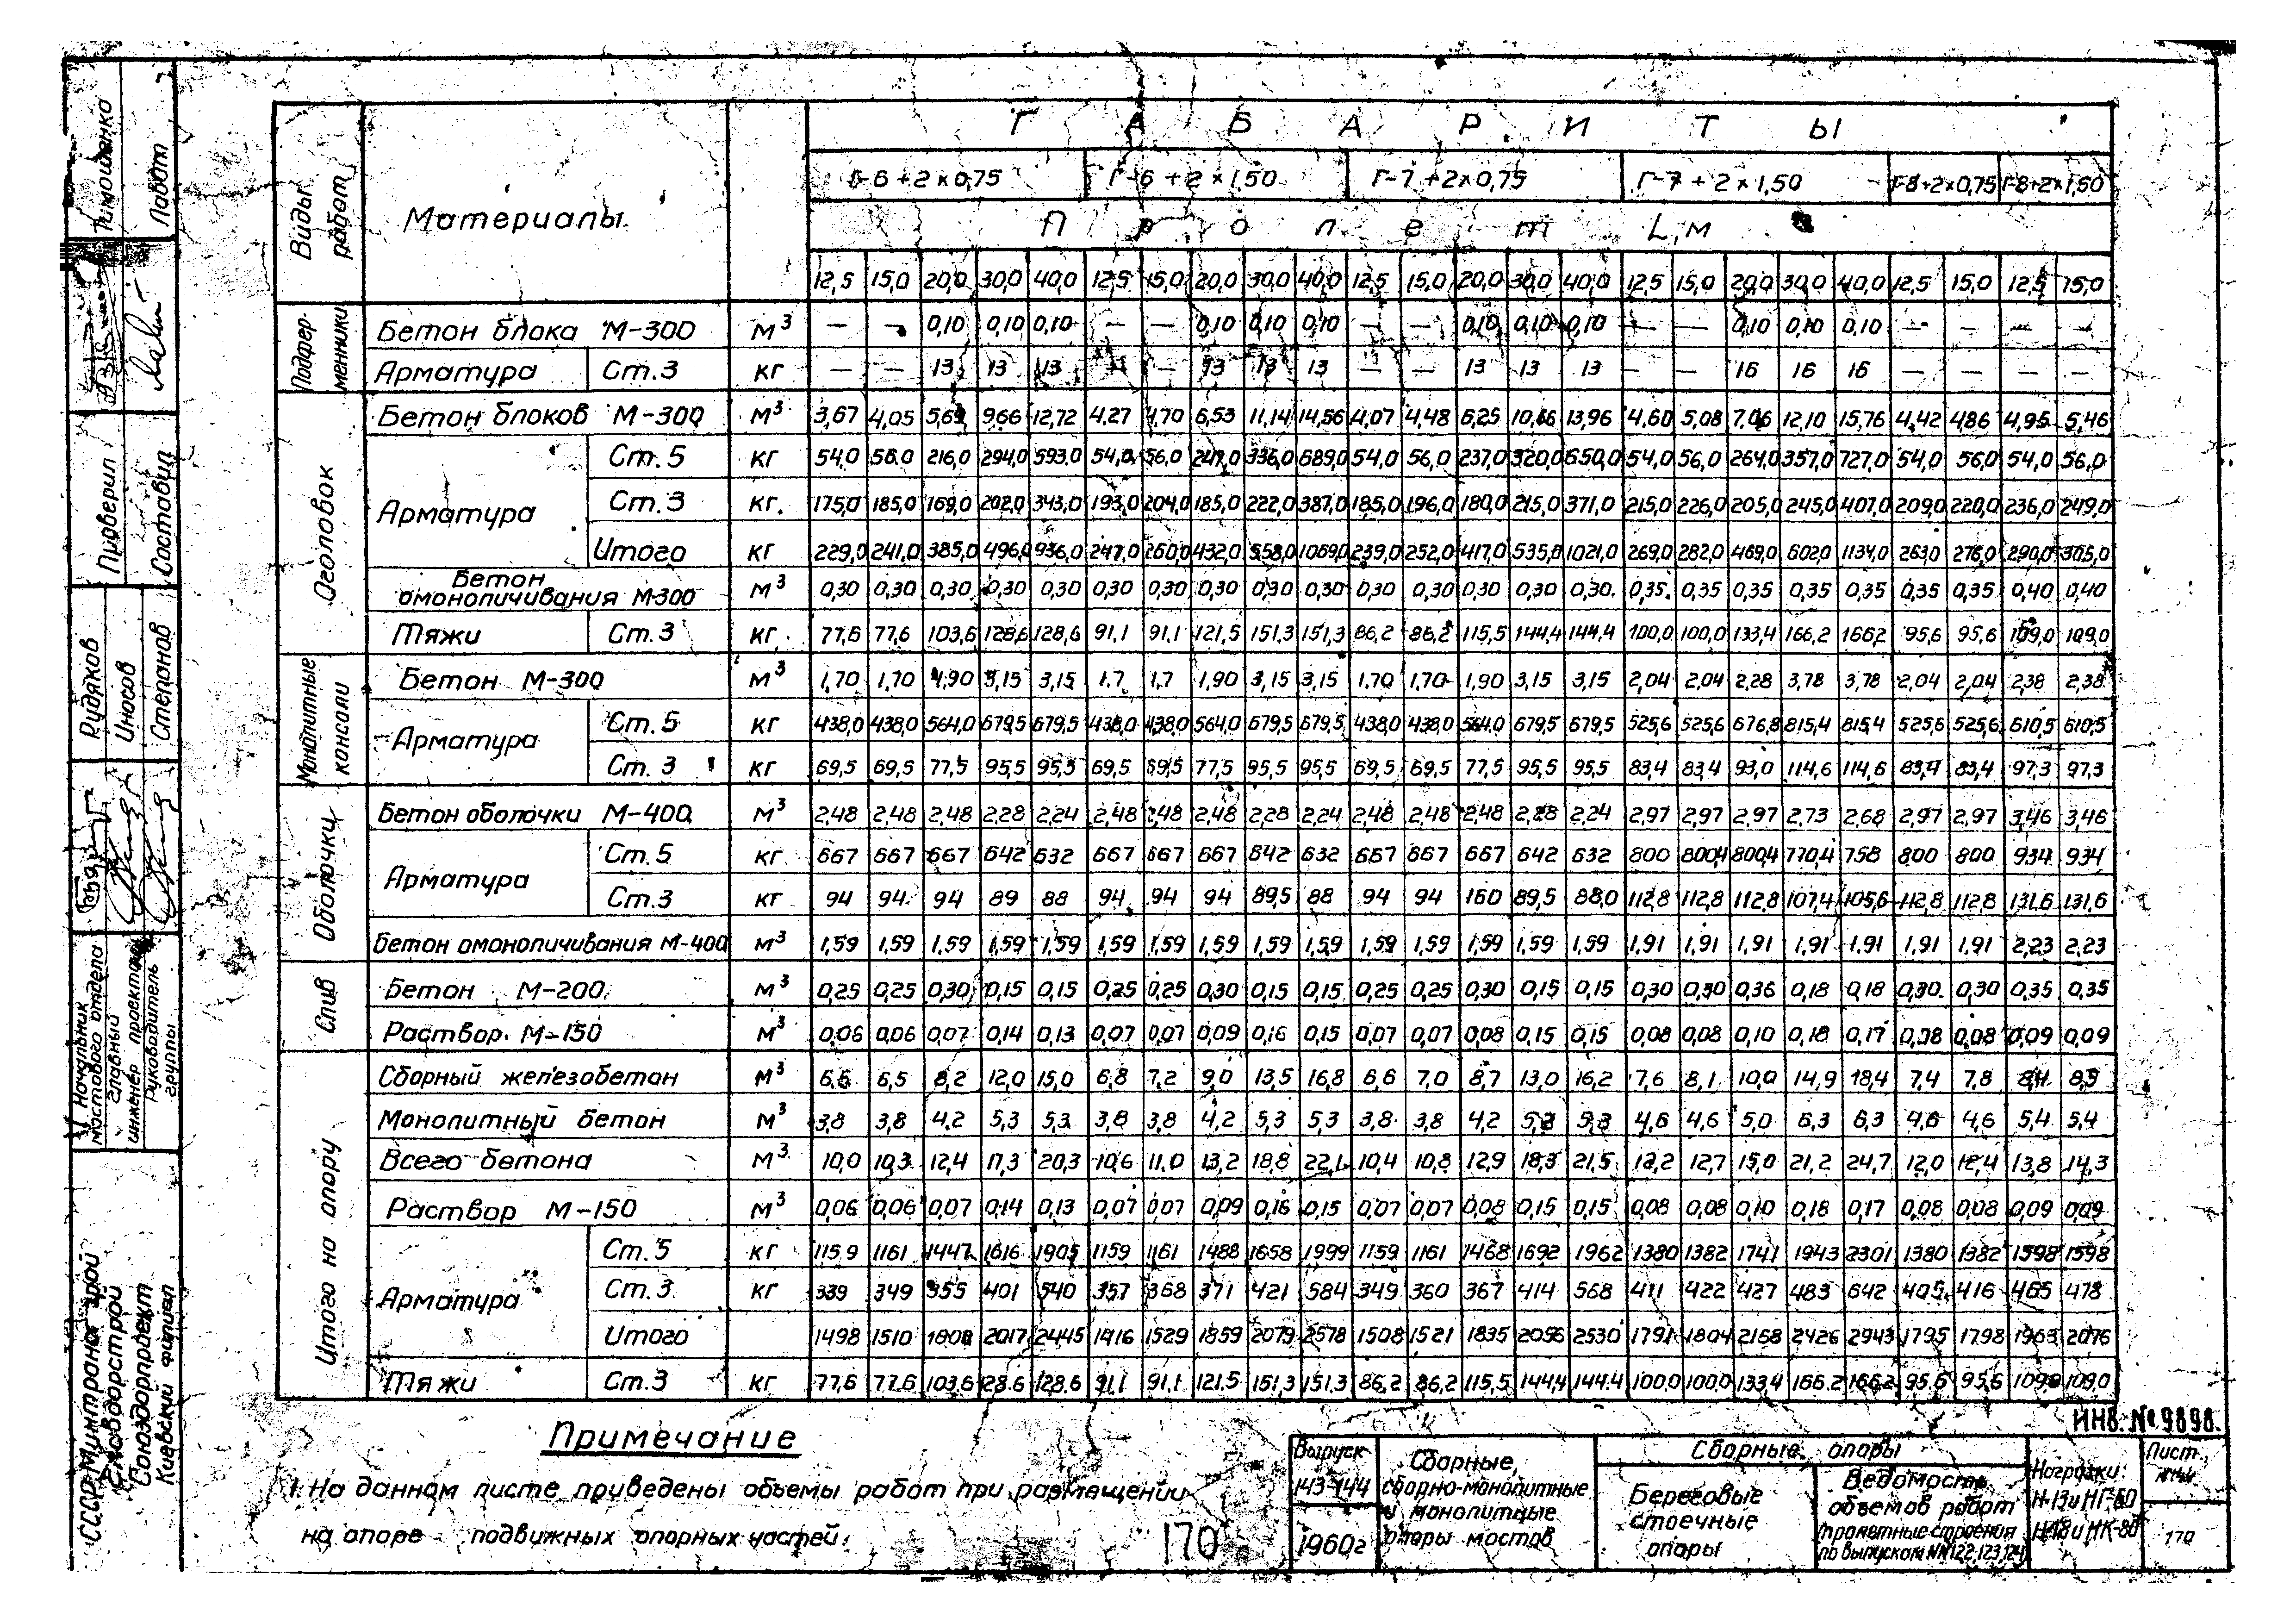 ГАБАРИТЫ
Виды работ Материалы Г-6+2×0,75 Г-6+2×1,50 Г-7+2×0,75 Г-7+2×1,50 Г-8+2×0,75 Г-8+2×1,50
Пролет L, м
12,5 15,0 20,0 30,0 40,0 12,5 15,0 20,0 30,0 40,0 12,5 15,0 20,0 30,0 40,0 12,5 15,0 20,0 30,0 40,0 12,5 15,0 12,5 15,0
Подфер-
менники
Бетон блока М-300 м³ — — 0,10 0,10 0,10 — — 0,10 0,10 0,10 — — 0,10 0,10 0,10 — — 0,10 0,10 0,10 — — — —
Арматура Ст.3 кг — — 13 13 13 — — 13 13 13 — — 13 13 13 — — 16 16 16 — — — —
Оголовок
Бетон блоков М-300 м³ 3,67 4,05 5,69 9,66 12,72 4,27 4,70 6,53 11,14 14,56 4,07 4,48 6,25 10,66 13,96 4,60 5,08 7,06 12,10 15,76 4,42 4,86 4,95 5,46
Арматура
Ст.5 кг 54,0 56,0 216,0 294,0 593,0 54,0 56,0 247,0 336,0 689,0 54,0 56,0 237,0 320,0 650,0 54,0 56,0 264,0 357,0 727,0 54,0 56,0 54,0 56,0
Ст.3 кг. 175,0 185,0 169,0 202,0 343,0 193,0 204,0 185,0 222,0 387,0 185,0 196,0 180,0 215,0 371,0 215,0 226,0 205,0 245,0 407,0 209,0 220,0 236,0 249,0
Итого кг 229,0 241,0 385,0 496,0 936,0 247,0 260,0 432,0 558,0 1069,0 239,0 252,0 417,0 535,0 1021,0 269,0 282,0 469,0 602,0 1134,0 263,0 276,0 290,0 305,0
Бетон
омоноличивания М-300 м³ 0,30 0,30 0,30 0,30 0,30 0,30 0,30 0,30 0,30 0,30 0,30 0,30 0,30 0,30 0,30 0,35 0,35 0,35 0,35 0,35 0,35 0,35 0,40 0,40
Тяжи Ст.3 кг. 77,6 77,6 103,6 128,6 128,6 91,1 91,1 121,5 151,3 151,3 86,2 86,2 115,5 144,4 144,4 100,0 100,0 133,4 166,2 166,2 95,6 95,6 109,0 109,0
Монолитные
консоли
Бетон М-300 м³ 1,70 1,70 1,90 3,15 3,15 1,7 1,7 1,90 3,15 3,15 1,70 1,70 1,90 3,15 3,15 2,04 2,04 2,28 3,78 3,78 2,04 2,04 2,38 2,38
Арматура
Ст.5 кг 438,0 438,0 564,0 679,5 679,5 438,0 438,0 564,0 679,5 679,5 438,0 438,0 564,0 679,5 679,5 525,6 525,6 676,8 815,4 815,4 525,6 525,6 610,5 610,5
Ст. 3 кг 69,5 69,5 77,5 95,5 95,5 69,5 69,5 77,5 95,5 95,5 69,5 69,5 77,5 95,5 95,5 83,4 83,4 93,0 114,6 114,6 83,4 83,4 97,3 97,3
Оболочки
Бетон оболочки М-400 м³ 2,48 2,48 2,48 2,28 2,24 2,48 2,48 2,48 2,28 2,24 2,48 2,48 2,48 2,28 2,24 2,97 2,97 2,97 2,73 2,68 2,97 2,97 3,46 3,46
Арматура
Ст.5 кг 667 667 667 642 632 667 667 667 642 632 667 667 667 642 632 800 800,4 800,4 770,4 758 800 800 934 934
Ст.3 кг 94 94 94 89 88 94 94 94 89,5 88 94 94 160 89,5 88,0 112,8 112,8 112,8 107,4 105,6 112,8 112,8 131,6 131,6
Бетон омоноличивания М-400 м³ 1,59 1,59 1,59 1,59 1,59 1,59 1,59 1,59 1,59 1,59 1,59 1,59 1,59 1,59 1,59 1,91 1,91 1,91 1,91 1,91 1,91 1,91 2,23 2,23
Слив
Бетон М-200 м³ 0,25 0,25 0,30 0,15 0,15 0,25 0,25 0,30 0,15 0,15 0,25 0,25 0,30 0,15 0,15 0,30 0,30 0,36 0,18 0,18 0,30 0,30 0,35 0,35
Раствор М-150 м³ 0,06 0,06 0,07 0,14 0,13 0,07 0,07 0,09 0,16 0,15 0,07 0,07 0,08 0,15 0,15 0,08 0,08 0,10 0,18 0,17 0,08 0,08 0,09 0,09
Итого на опору
Сборный железобетон м³ 6,6 6,5 8,2 12,0 15,0 6,8 7,2 9,0 13,5 16,8 6,6 7,0 8,7 13,0 16,2 7,6 8,1 10,0 14,9 18,4 7,4 7,8 8,4 8,9
Монолитный бетон м³ 3,8 3,8 4,2 5,3 5,3 3,8 3,8 4,2 5,3 5,3 3,8 3,8 4,2 5,3 5,3 4,6 4,6 5,0 6,3 6,3 4,6 4,6 5,4 5,4
Всего бетона м³ 10,0 10,3 12,4 17,3 20,3 10,6 11,0 13,2 18,8 22,1 10,4 10,8 12,9 18,3 21,5 12,2 12,7 15,0 21,2 24,7 12,0 12,4 13,8 14,3
Раствор М-150 м³ 0,06 0,06 0,07 0,14 0,13 0,07 0,07 0,09 0,16 0,15 0,07 0,07 0,08 0,15 0,15 0,08 0,08 0,10 0,18 0,17 0,08 0,08 0,09 0,09
Арматура
Ст.5 кг 1159 1161 1447 1616 1905 1159 1161 1488 1658 1999 1159 1161 1468 1692 1962 1380 1382 1741 1943 2301 1380 1382 1598 1598
Ст.3 кг 339 349 355 401 540 357 368 371 421 584 349 360 367 414 568 411 422 427 483 642 405 416 465 478
Итого 1498 1510 2017 2445 1416 1529 1859 2079 2578 1508 1521 1835 2056 2530 1791 1804 2168 2426 2943 1795 1798 1963 2076
Тяжи Ст.3 кг 77,6 77,6 103,6 128,6 128,6 91,1 91,1 121,5 151,3 151,3 86,2 86,2 115,5 144,4 144,4 100,0 100,0 133,4 166,2 166,2 95,6 95,6 109,0 109,0
Примечание
1. На данном листе приведены объемы работ при размещении
на опоре подвижных опорных частей.
170
ИНВ. № 9898.
Выпуск
143-144
1960г
Сборные,
сборно-монолитные
и монолитные
опоры мостов
Сборные опоры
Береговые
стоечные
опоры
Ведомость
объемов работ
/пролетные строения
по выпускам NN 122, 123, 124/
Нагрузки:
Н-13 и НГ-60
Н-18 и НК-80
Лист
170
Тимошенко
Лабот
Проверил
Составил
Рудяков
Иносов
Степанов
Начальник
мостового отдела
Главный
инженер проекта
Руководитель
группы
СССР Минтрансстрой
Главдорстрой
Союздорпроект
Киевский филиал